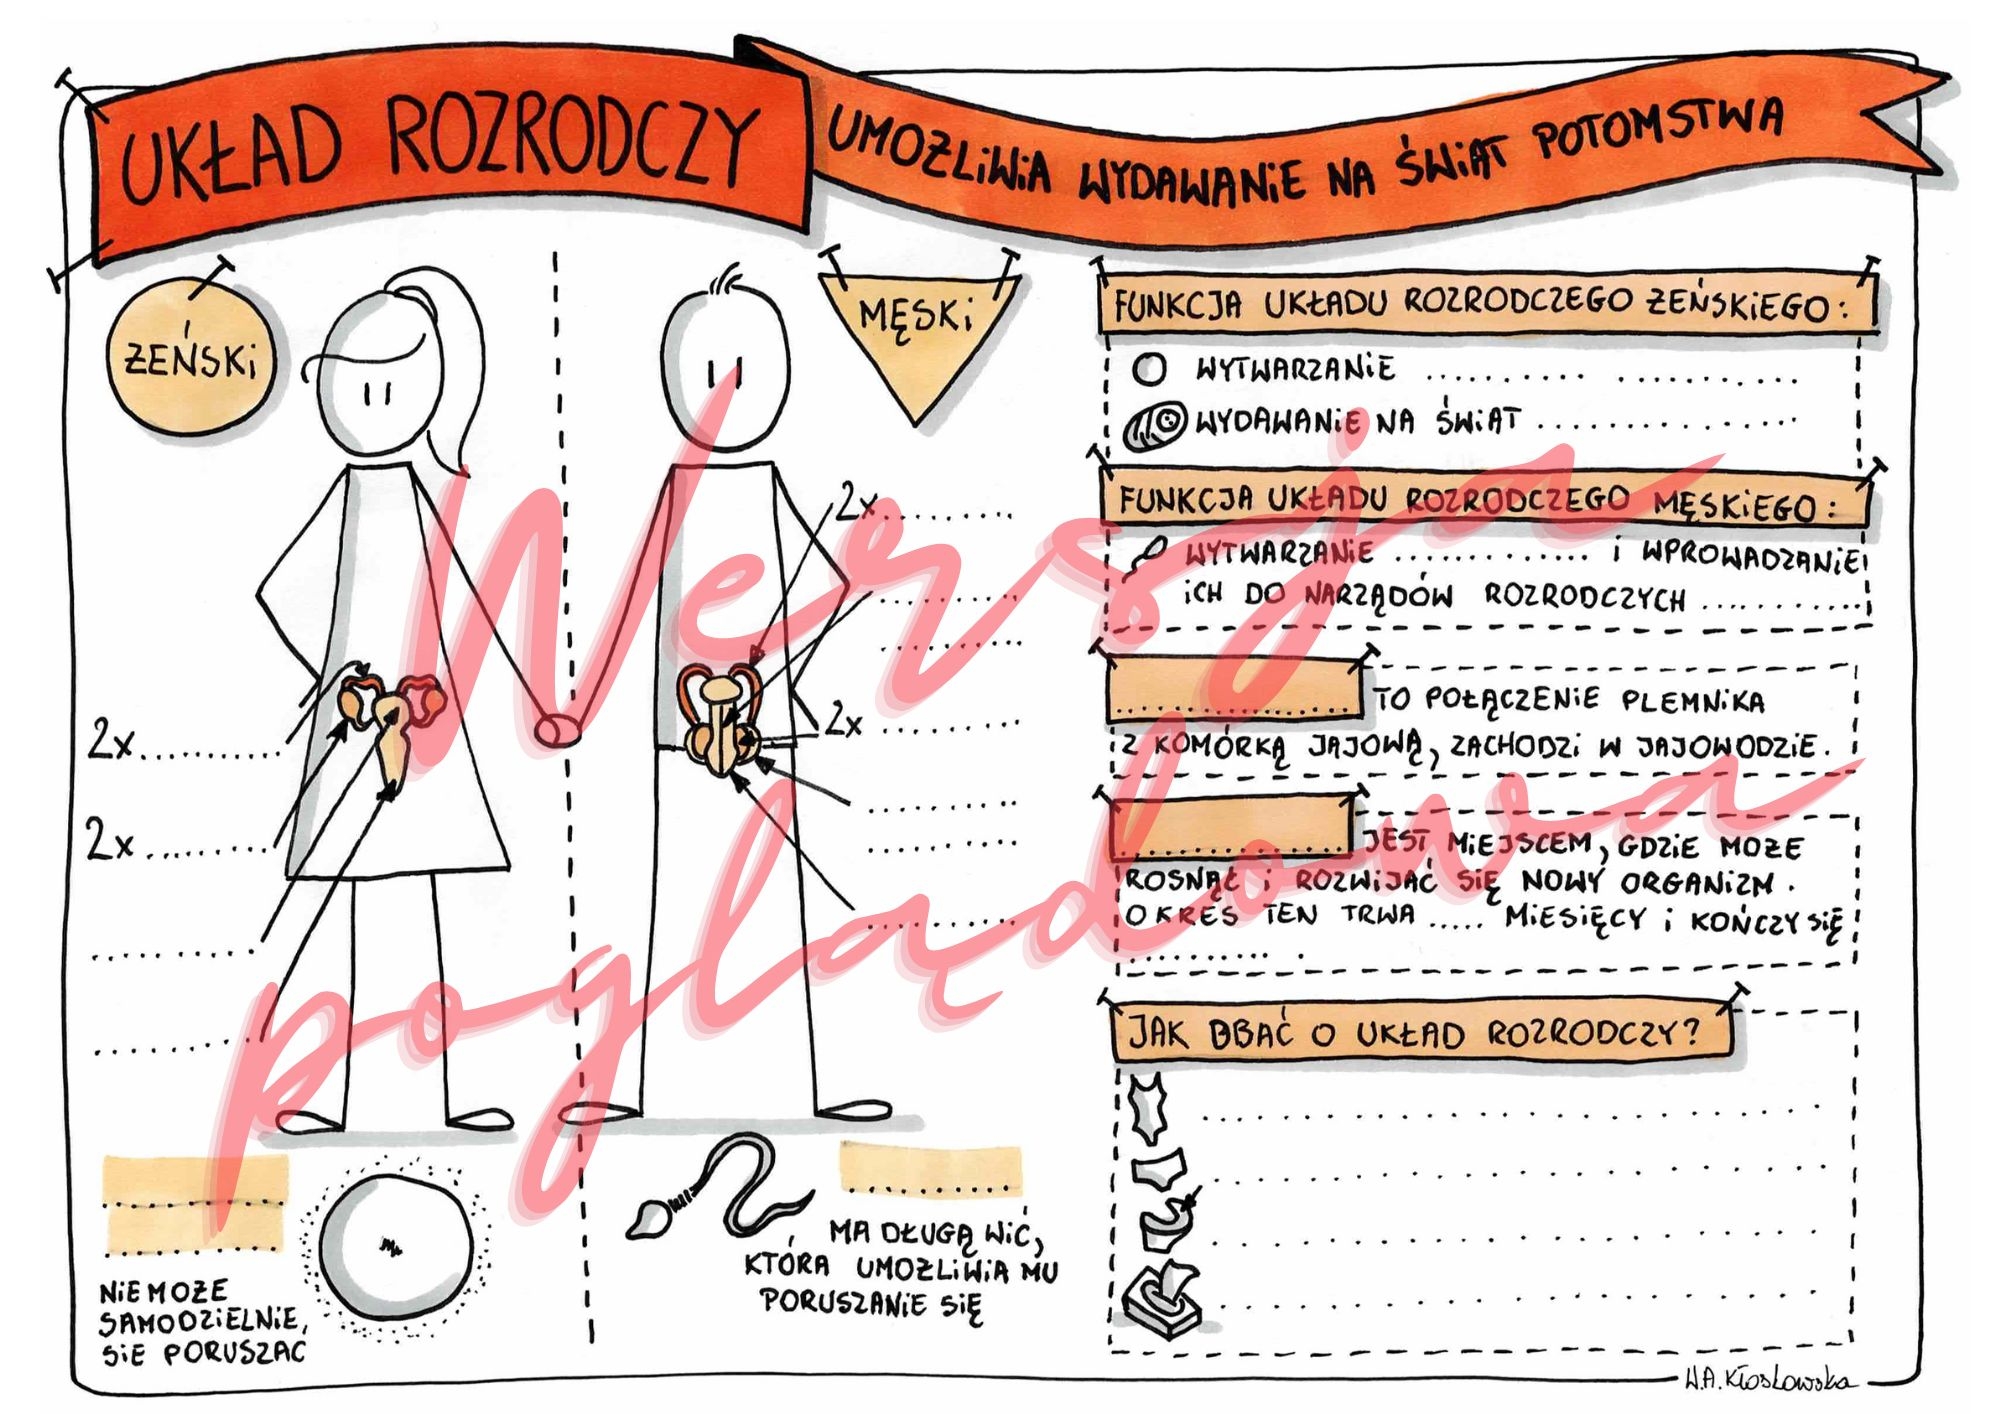 UKŁAD ROZRODCZY
UMOŻLIWIA WYDAWANIE NA ŚWIAT POTOMSTWA
ŻEŃSKI
MĘSKI
2x..........
2x.........
..........
..........
2x..........
..........
..........
2x..........
..........
..........
..........
NIE MOŻE
SAMODZIELNIE,
SIE PORUSZAC
MA DŁUGĄ WIĆ,
KTÓRA UMOŻLIWIA MU
PORUSZANIE SIĘ
FUNKCJA UKŁADU ROZRODCZEGO ŻEŃSKIEGO:
WYTWARZANIE .......... ..........
WYDAWANIE NA ŚWIAT ..........
FUNKCJA UKŁADU ROZRODCZEGO MĘSKIEGO:
WYTWARZANIE .......... I WPROWADZANIE
ICH DO NARZĄDÓW ROZRODCZYCH ..........
.......... TO POŁĄCZENIE PLEMNIKA
Z KOMÓRKĄ JAJOWĄ, ZACHODZI W JAJOWODZIE.
.......... JEST MIEJSCEM, GDZIE MOŻE
ROSNĄĆ I ROZWIJAĆ SIĘ NOWY ORGANIZM.
OKRES TEN TRWA ..... MIESIĘCY I KOŃCZY SIĘ
.......... .
JAK BBAĆ O UKŁAD ROZRODCZY?
W.A.Kłosłowska
Wersja
poglądowa